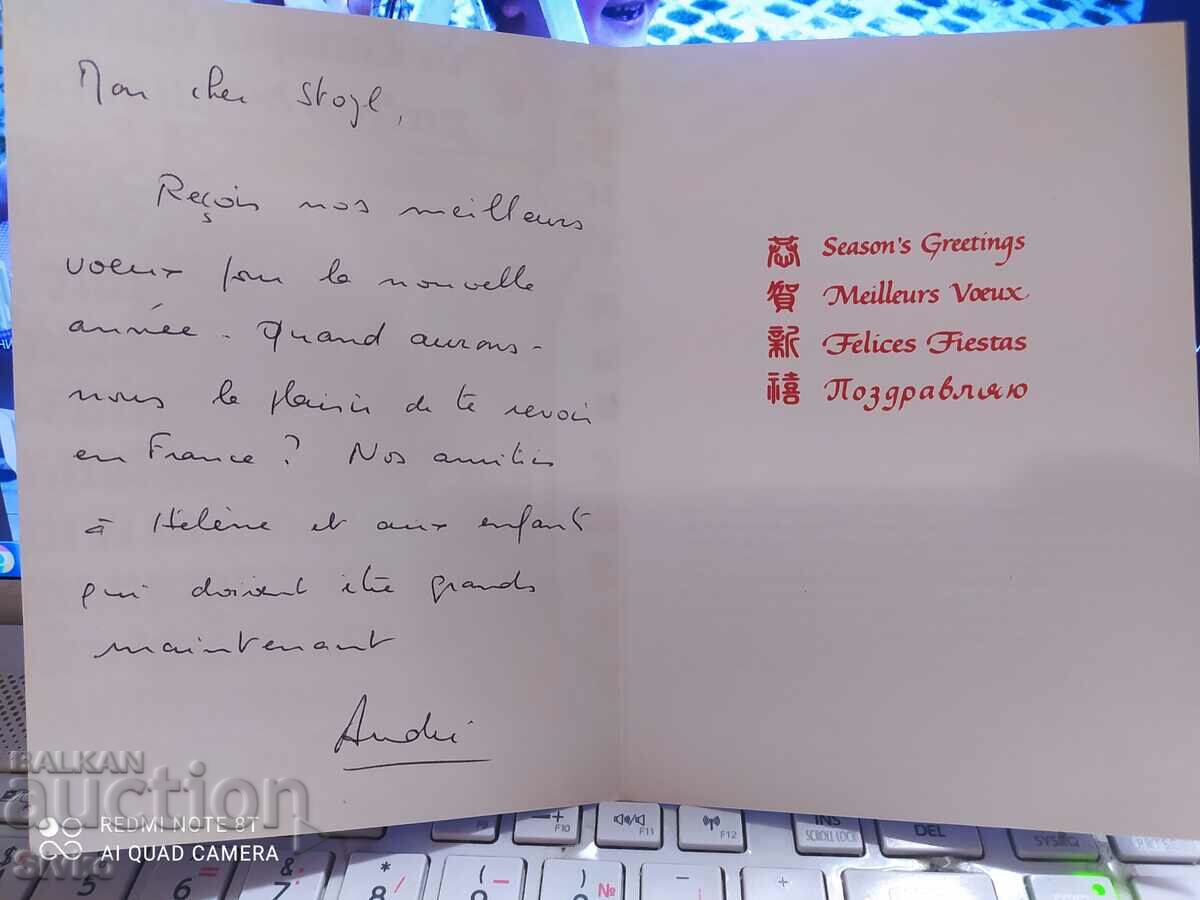 Mon cher Stoyl,
Reçois nos meilleurs
voeux pour la nouvelle
année. Quand aurons-
nous le plaisir de te revoir
en France ? Nos amitiés
à Hélène et aux enfant
qui doivent être grands
maintenant
André
恭 Season's Greetings
賀 Meilleurs Vœux
新 Felices Fiestas
禧 Поздравляю
BALKAN
auction
REDMI NOTE 8T
AI QUAD CAMERA
F10
F11
F12
INS
SCROLL LOCK
DEL
SYSRQ
5
6 =
& 7 :
* 8 /
9
0 №